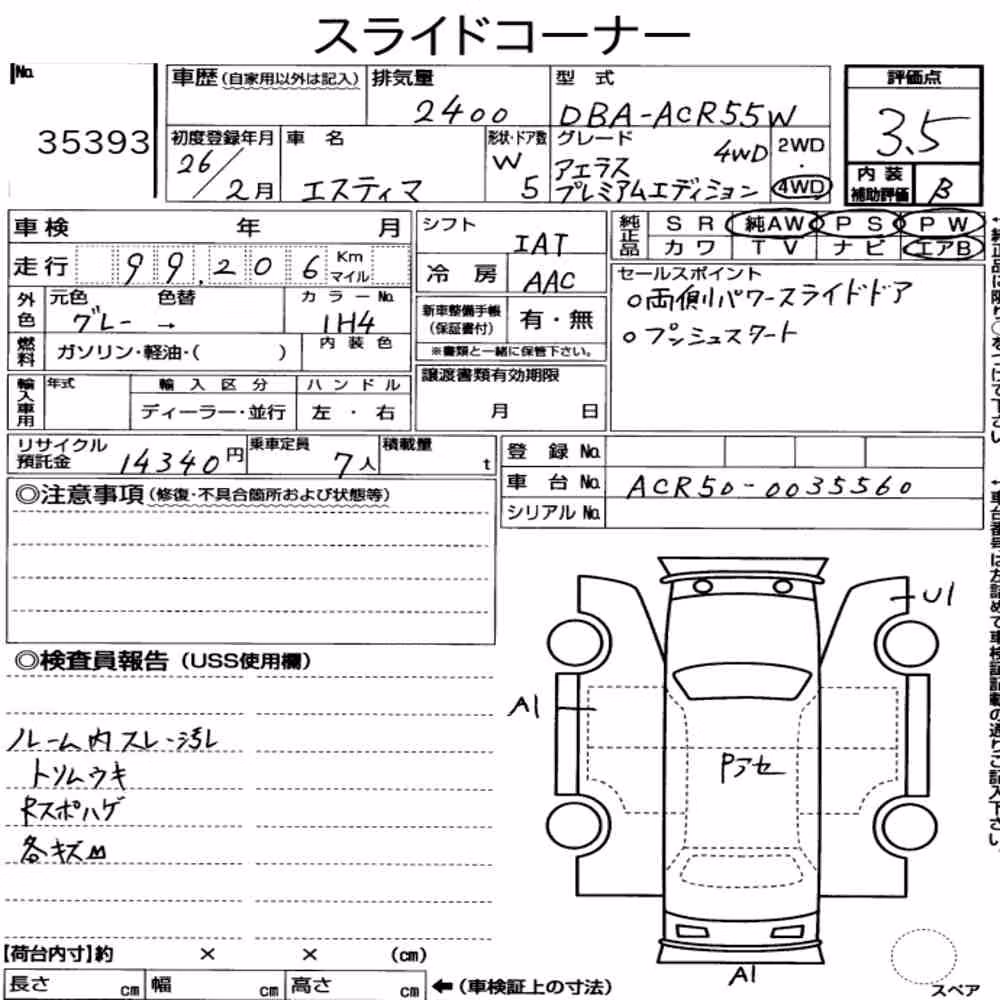 スライドコーナー
No.
35393
車歴(自家用以外は記入)
排気量
2400
型 式
DBA-ACR55W
評価点
3.5
初度登録年月
26/2月
車 名
エスティマ
形状・ドア数
W
5
グレード
4WD
アエラス
プレミアムエディション
2WD
・
4WD
内 装
補助評価
B
車検 年 月
走行 99.206 Km
マイル
外色
元色 色替
グレー →
カラーNo.
1H4
燃料
ガソリン・軽油・( )
内装色
輸入車用
年式
輸入区分
ディーラー・並行
ハンドル
左 ・ 右
シフト
IAT
冷 房
AAC
新車整備手帳
(保証書付)
有・無
※書類と一緒に保管下さい。
譲渡書類有効期限
月 日
純正品
SR 純AW PS PW
カワ TV ナビ エアB
セールスポイント
○両側パワースライドドア
○プッシュスタート
リサイクル
預託金
14340円
乗車定員
7人
積載量
t
登 録 No.
車 台 No. ACR50-0035560
シリアル No.
◎注意事項(修復・不具合箇所および状態等)
◎検査員報告(USS使用欄)
ルーム内スレ・汚レ
トリムウキ
Rスポハゲ
各キズ
U1
A1
Pアセ
A1
スペア
【荷台内寸】約 × × (cm)
長さ cm 幅 cm 高さ cm ←(車検証上の寸法)
↑純正品は限り○をつけて下さい
↑車台番号は左詰めで車検証記載の通りご記入下さい。